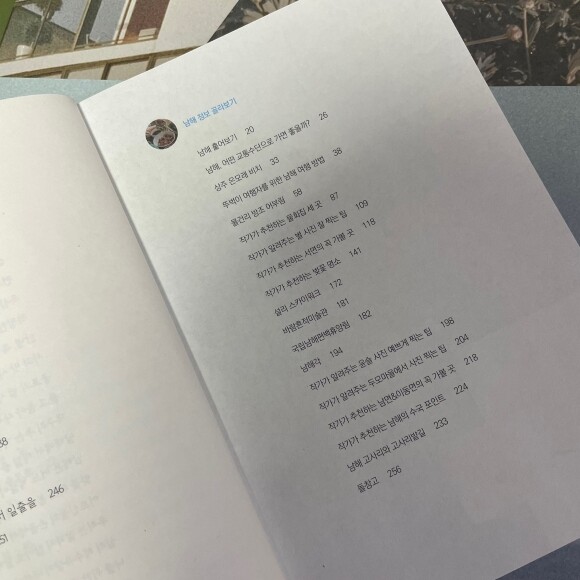 38
서 일출을 246
51
남해 정보 골라보기
남해 훑어보기 20
남해, 어떤 교통수단으로 가면 좋을까? 26
상주 은모래 비치 33
뚜벅이 여행자를 위한 남해 여행 방법 38
물건리 방조어부림 58
작가가 추천하는 물회집 세 곳 87
작가가 알려주는 별 사진 잘 찍는 팁 109
작가가 추천하는 서면의 꼭 가볼 곳 118
작가가 추천하는 벚꽃 명소 141
설리 스카이워크 172
바람흔적미술관 181
국립남해편백휴양림 182
남해각 194
작가가 알려주는 윤슬 사진 예쁘게 찍는 팁 198
작가가 알려주는 두모마을에서 사진 찍는 팁 204
작가가 추천하는 남면&이동면의 꼭 가볼 곳 218
작가가 추천하는 남해의 수국 포인트 224
남해 고사리와 고사리밭길 233
돌창고 256